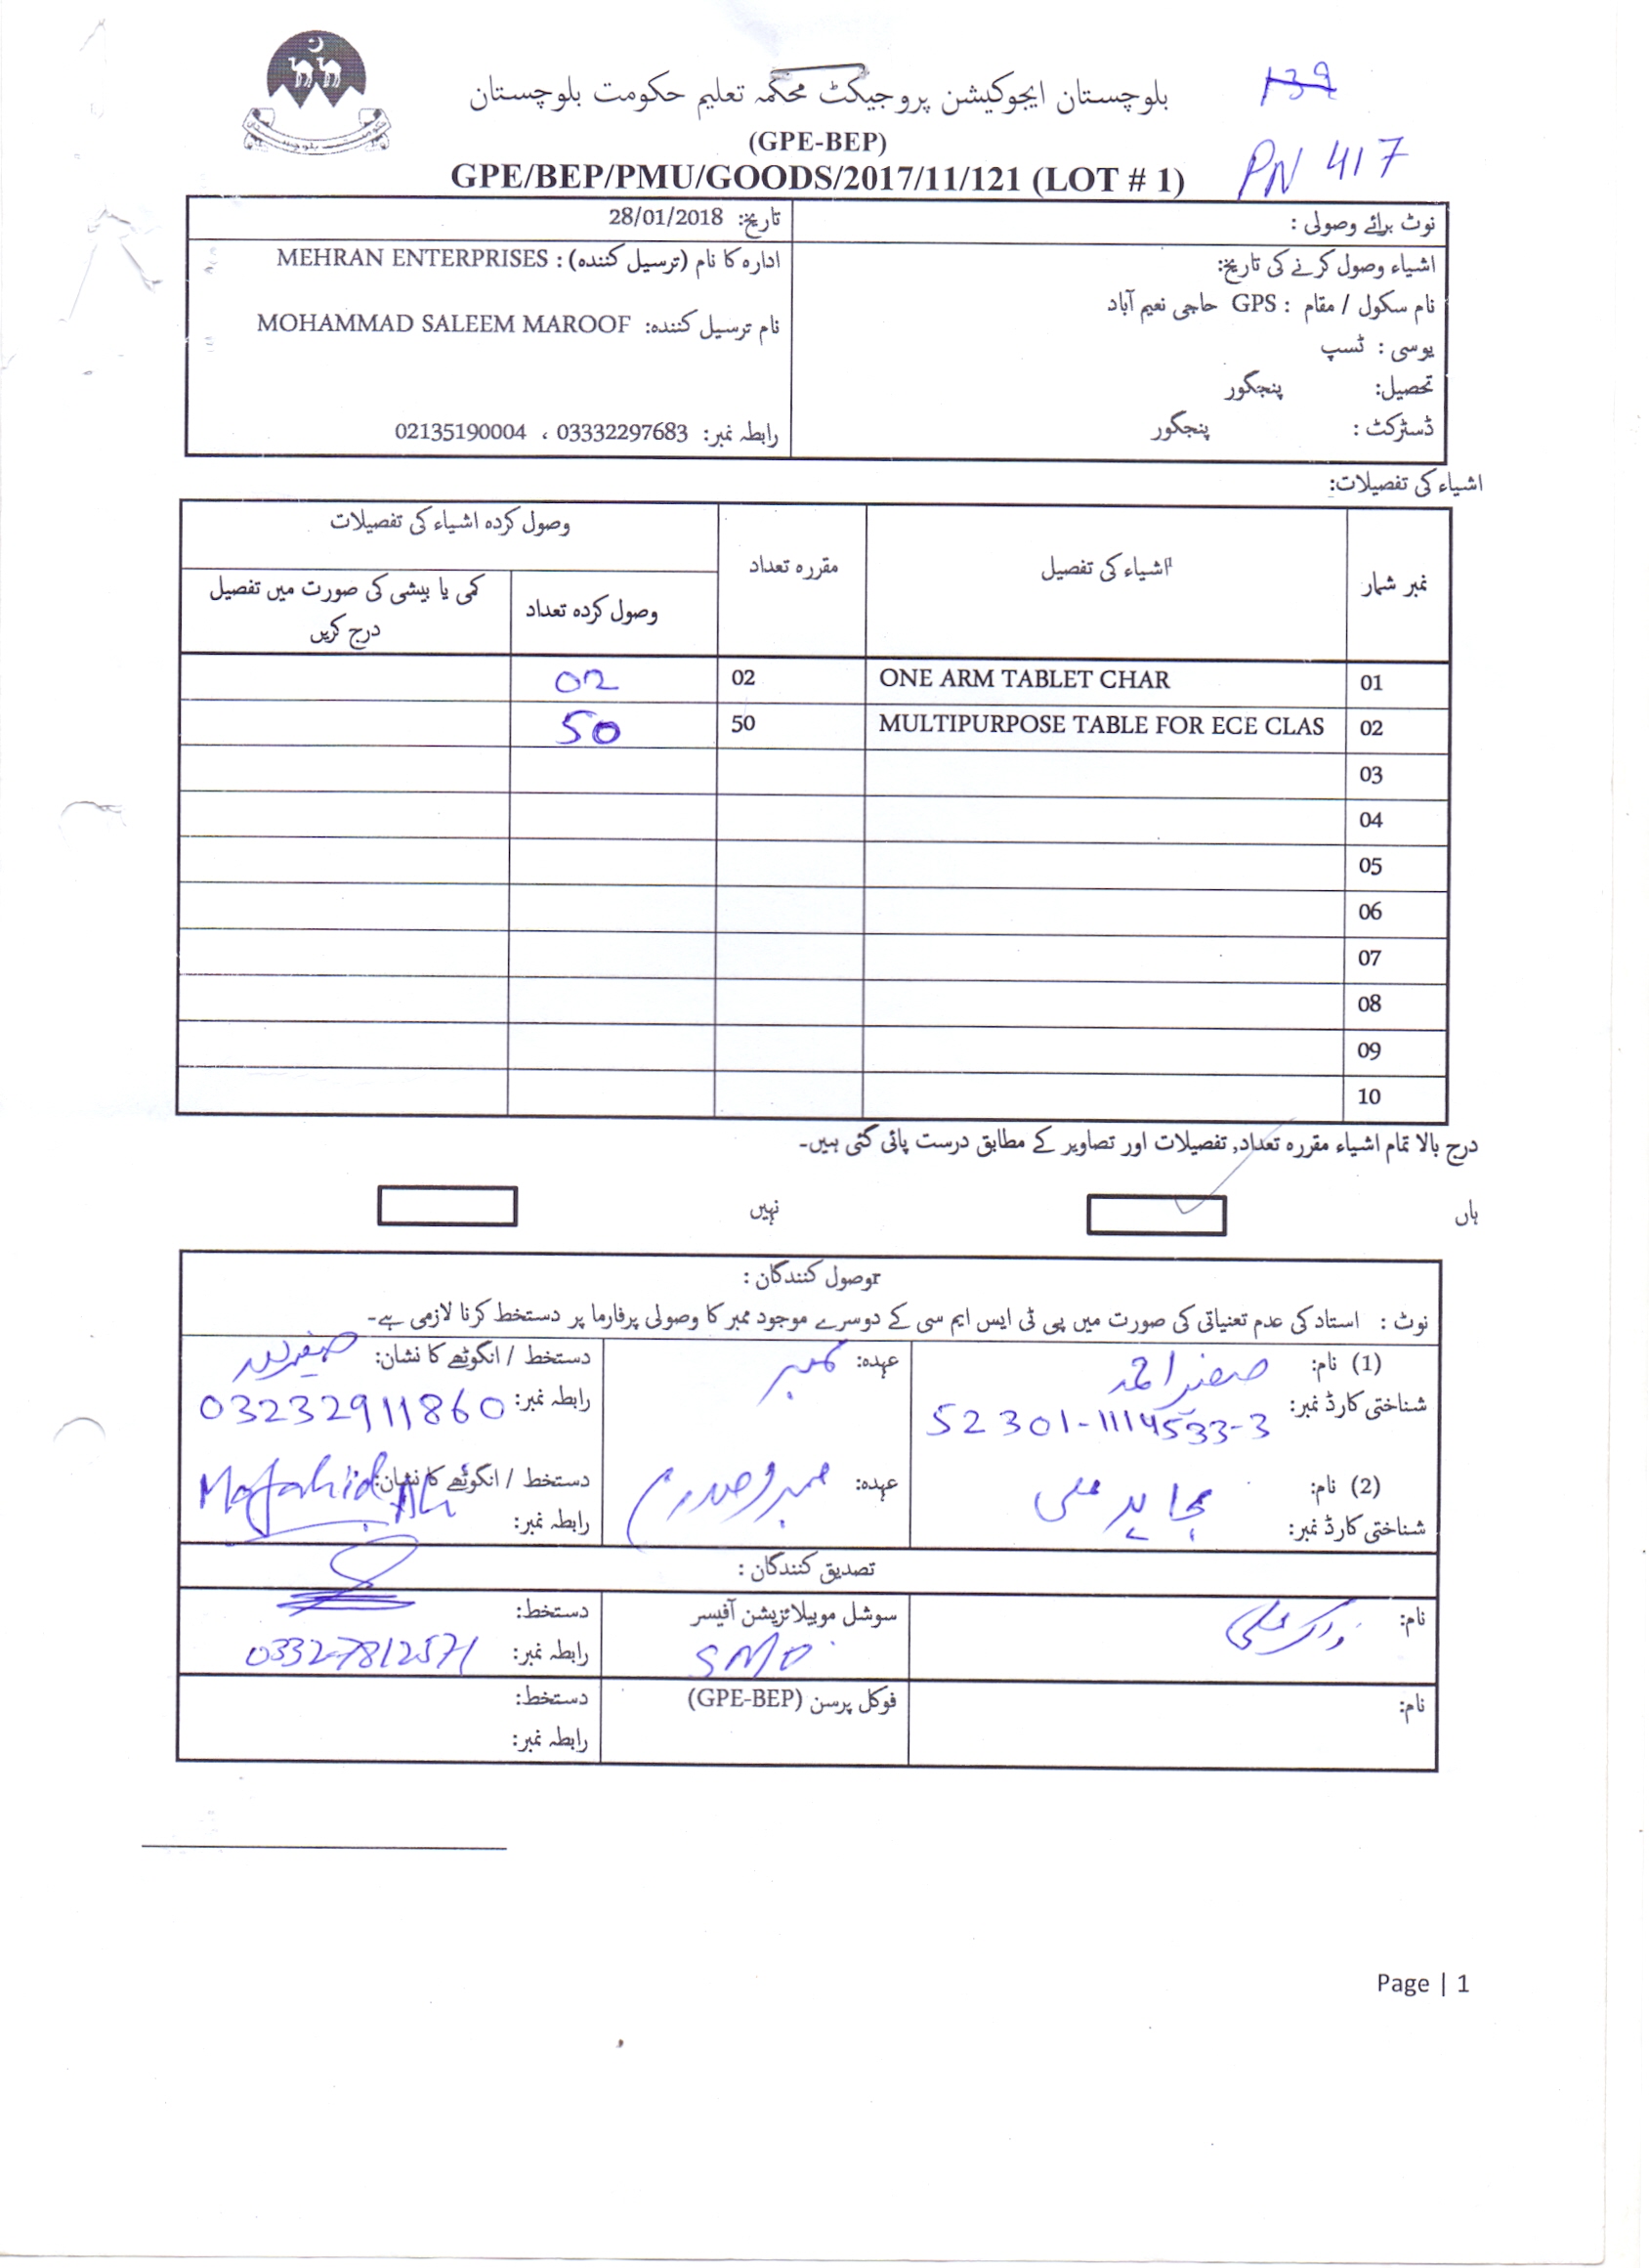 بلوچستان ایجوکیشن پروجیکٹ محکمہ تعلیم حکومت بلوچستان
139
(GPE-BEP)
PN 417
GPE/BEP/PMU/GOODS/2017/11/121 (LOT # 1)
نوٹ برائے وصولی :
اشیاء وصول کرنے کی تاریخ:
نام سکول / مقام : GPS حاجی نعیم آباد
یوسی : ٹسپ
تحصیل: پنجگور
ڈسٹرکٹ : پنجگور
تاریخ: 28/01/2018
ادارہ کا نام (ترسیل کنندہ) : MEHRAN ENTERPRISES
نام ترسیل کنندہ: MOHAMMAD SALEEM MAROOF
رابطہ نمبر: 03332297683 ، 02135190004
اشیاء کی تفصیلات:
نمبر شمار
اشیاء کی تفصیل
مقررہ تعداد
وصول کردہ اشیاء کی تفصیلات
وصول کردہ تعداد
کمی یا بیشی کی صورت میں تفصیل
درج کریں
01 ONE ARM TABLET CHAR 02 02
02 MULTIPURPOSE TABLE FOR ECE CLAS 50 50
03
04
05
06
07
08
09
10
درج بالا تمام اشیاء مقررہ تعداد, تفصیلات اور تصاویر کے مطابق درست پائی گئی ہیں۔
ہاں نہیں
وصول کنندگان :
نوٹ : استاد کی عدم تعنیاتی کی صورت میں پی ٹی ایس ایم سی کے دوسرے موجود ممبر کا وصولی پرفارما پر دستخط کرنا لازمی ہے۔
(1) نام: صغیر احمد عہدہ: ممبر دستخط / انگوٹھے کا نشان:
شناختی کارڈ نمبر: 52301-1114533-3 رابطہ نمبر: 03232911860
(2) نام: مجاہد علی عہدہ: دستخط / انگوٹھے کا نشان:
شناختی کارڈ نمبر: رابطہ نمبر:
تصدیق کنندگان :
نام: سوشل موبیلائزیشن آفیسر دستخط:
SMO رابطہ نمبر: 03327812571
نام: فوکل پرسن (GPE-BEP) دستخط:
رابطہ نمبر:
Page | 1